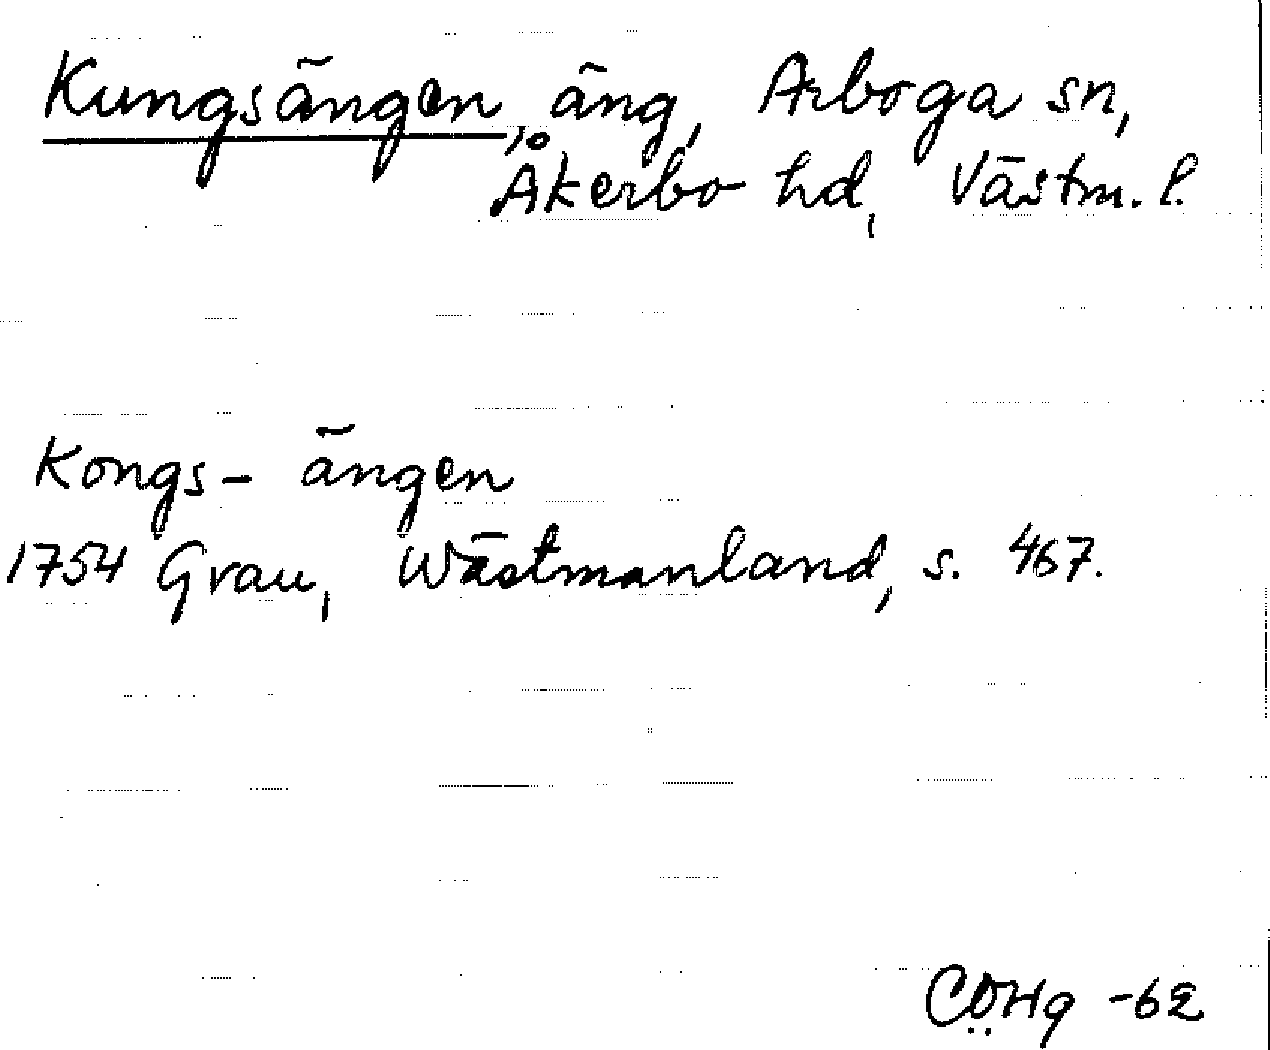 Kungsängen, äng, Arboga sn,
Åkerbo hd, Västm. l.
Kongs- ängen
1754 Grau, Wästmanland, s. 467.
CÖHg -62